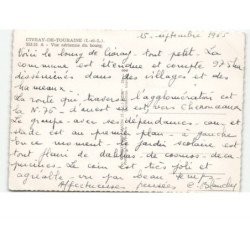 CIVRAY-DE-TOURAINE (I.-et-L.)
Vue aérienne du bourg
15 septembre 1965
Voici le bourg de Civray - tout petit. La
commune est étendue et compte 975 hab
disséminés dans des villages et des
hameaux.
La route qui traverse l'agglomération est
la N. 76 - à l'ouest on est vers Chenonceaux
Le groupe - avec ses dépendances - cour, et
stade est au premier plan - à gauche
En ce moment - le jardin scolaire est
tout fleuri de dahlias de cosmos - de ca
pucines. Le coin est très joli et
agréable, vu par beau temps
Affectueuses pensées C. Blanchy